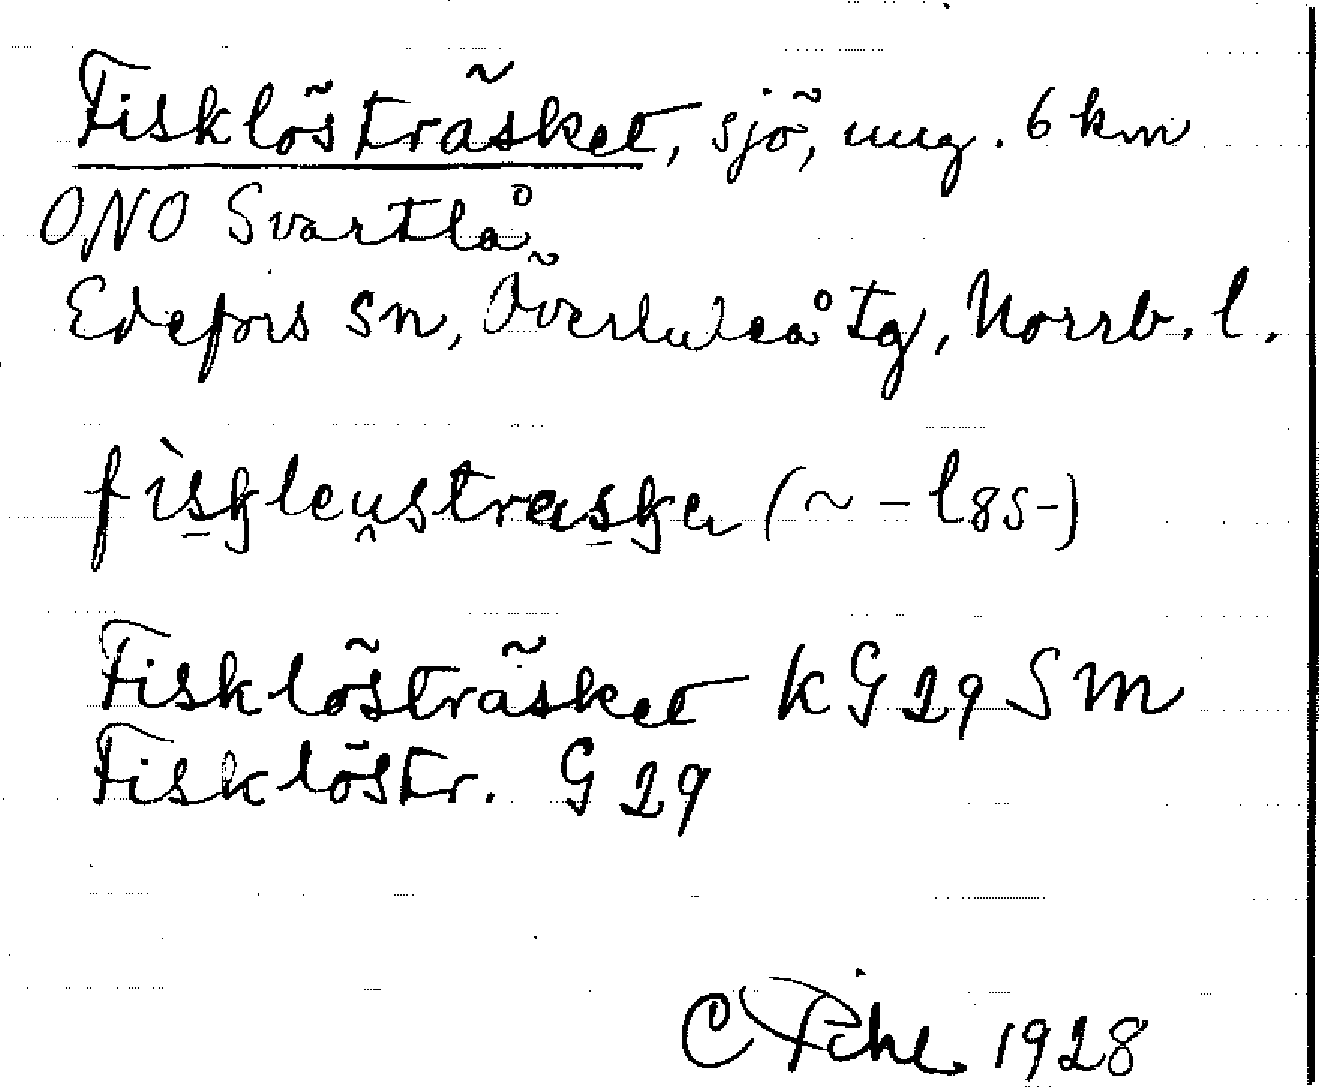 Fisklösträsket, sjö, ung. 6 km
ONO Svartlå
Edefors sn, Överluleå tg, Norrb. l.
fìskleustraska (~ - l8s-)
Fisklösträsket kG29SM
Fisklöstr. G29
C Pihl 1928